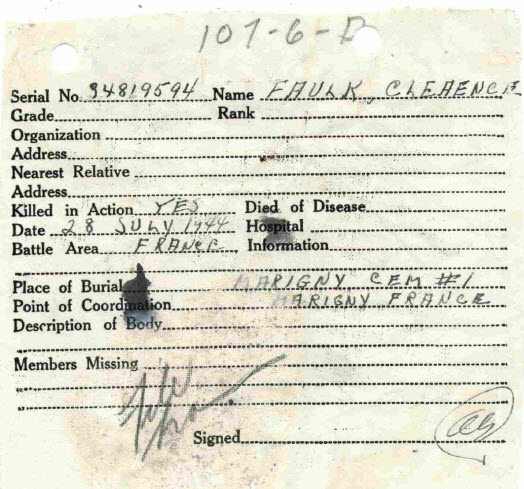 107-6-D
Serial No. 34819594 Name FAULK, CLEAENCE
Grade Rank
Organization
Address
Nearest Relative
Address
Killed in Action YES Died of Disease
Date 28 JULY 1944 Hospital
Battle Area FRANCE Information
Place of Burial MARIGNY CEM #1
Point of Coordination MARIGNY FRANCE
Description of Body
Members Missing
"
"
Signed